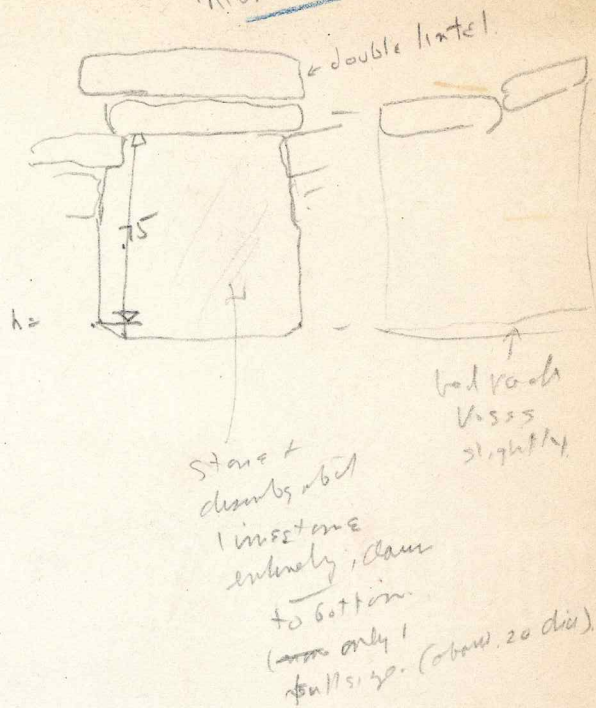 double lintel
.75
h =
bed rock
rises
slightly
stone +
disintegrated
limestone
entirely, down
to bottom.
(only 1
full size. (about .20 dia).